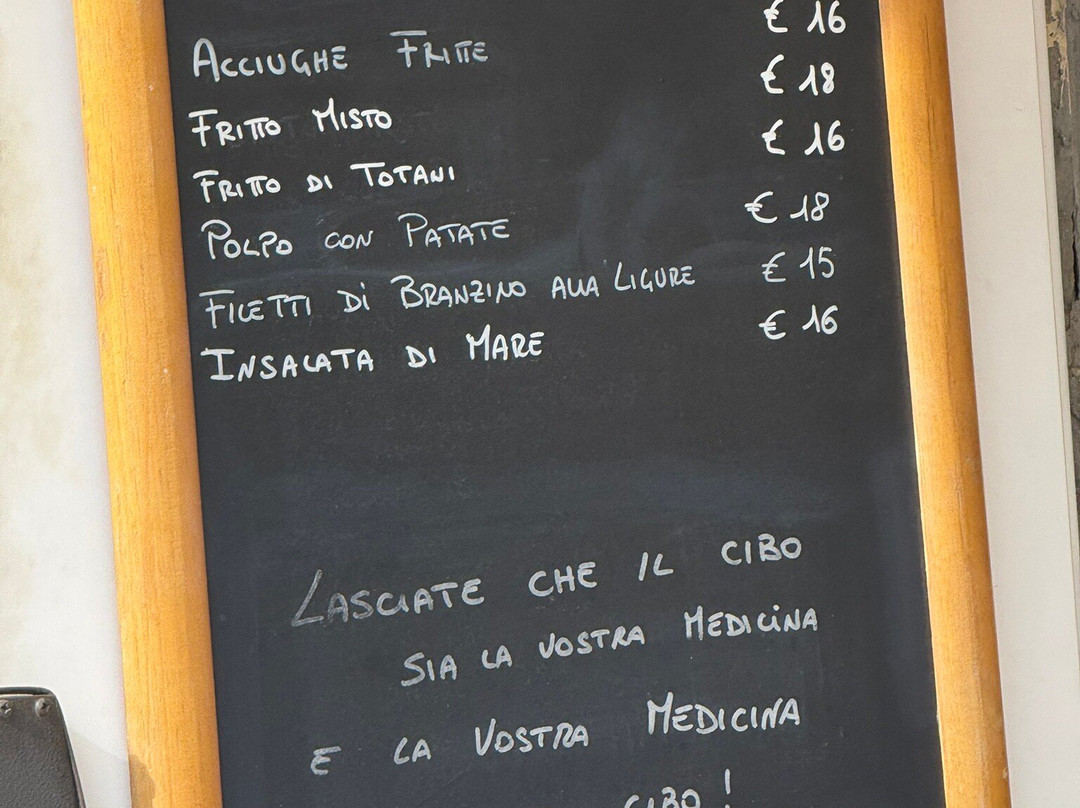 ACCIUGHE FRITTE € 16
FRITTO MISTO € 18
FRITTO DI TOTANI € 16
POLPO CON PATATE € 18
FILETTI Di BRANZINO ALLA LIGURE € 15
INSALATA DI MARE € 16
LASCIATE CHE IL CIBO
SIA LA VOSTRA MEDICiNA
E LA VOSTRA MEDICINA
CIBO !